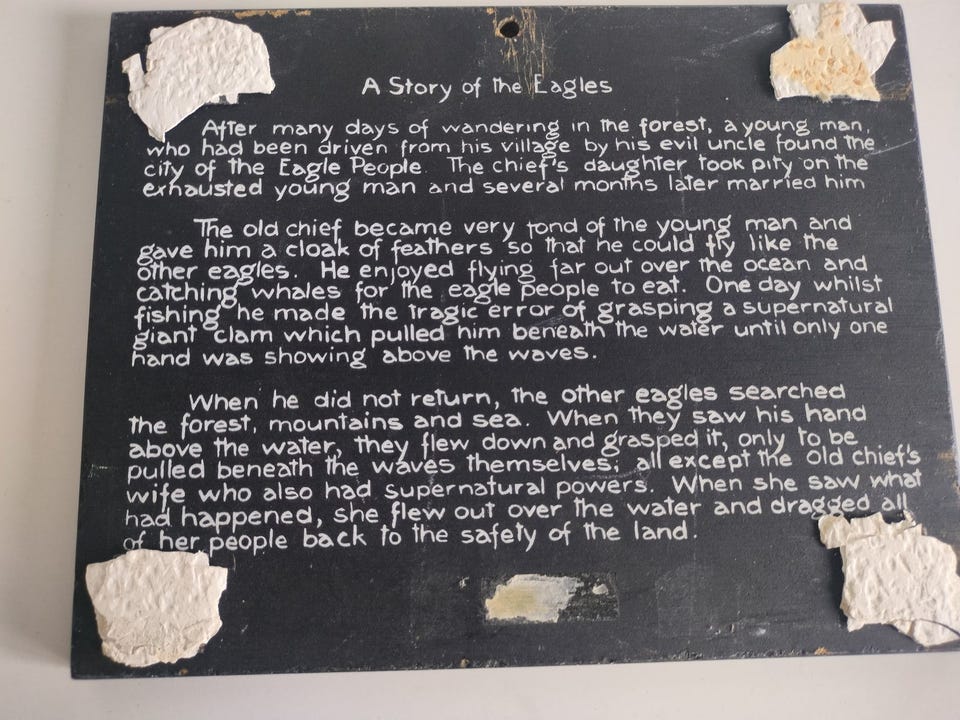 A Story of the Eagles
After many days of wandering in the forest, a young man,
who had been driven from his village by his evil uncle found the
city of the Eagle People. The chief's daughter took pity on the
exhausted young man and several months later married him
The old chief became very fond of the young man and
gave him a cloak of feathers so that he could fly like the
other eagles. He enjoyed flying far out over the ocean and
catching whales for the eagle people to eat. One day whilst
fishing he made the tragic error of grasping a supernatural
giant clam which pulled him beneath the water until only one
hand was showing above the waves.
When he did not return, the other eagles searched
the forest, mountains and sea. When they saw his hand
above the water, they flew down and grasped it, only to be
pulled beneath the waves themselves; all except the old chief's
wife who also had supernatural powers. When she saw what
had happened, she flew out over the water and dragged all
of her people back to the safety of the land.